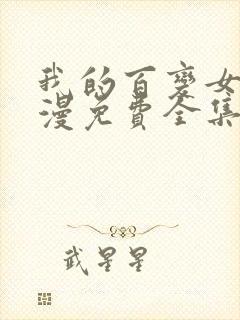 我的百变女
漫免费全集
武星星